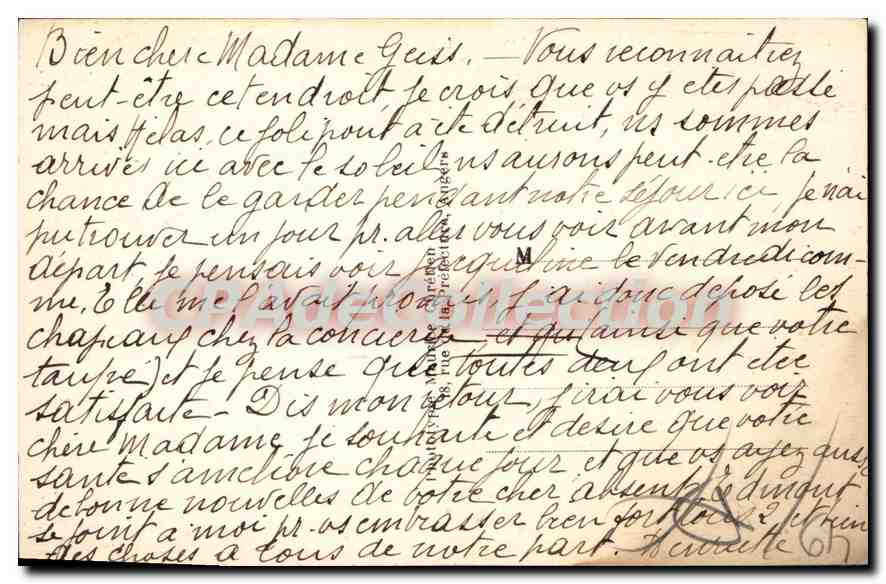 Bien chere Madame Geiss. — Vous reconnaitrez
peut-être cet endroit, je crois, que vs y etes passée
mais Helas, ce joli pont a été détruit, ns sommes
arrivées ici avec le soleil ns aurons peut-etre la
chance de le garder pendant notre séjour ici, je n'ai
pu trouver un jour pr. aller vous voir avant mon
départ, je pensais voir Jacqueline le Vendredi com-
me. Elle me l'avait promis, j'ai donc déposé les
chapeaux chez la concierge, et qu (ainsi que votre
taupé) et je pense que toutes deux ont etée
satisfaite — Dis mon retour, j'irai vous voir
chère Madame, je souhaite et desire que votre
santé s'améliore chaque jour et que vs ayez aussi
de bonne nouvelles de votre cher absent,
se joint à moi pr. vs embrasser bien fort tous 2, et bien
des choses à tous de notre part. Henriette
M
Phototypie Maurice Carétien
38, rue de la Préfecture, Angers
CPADeCollection